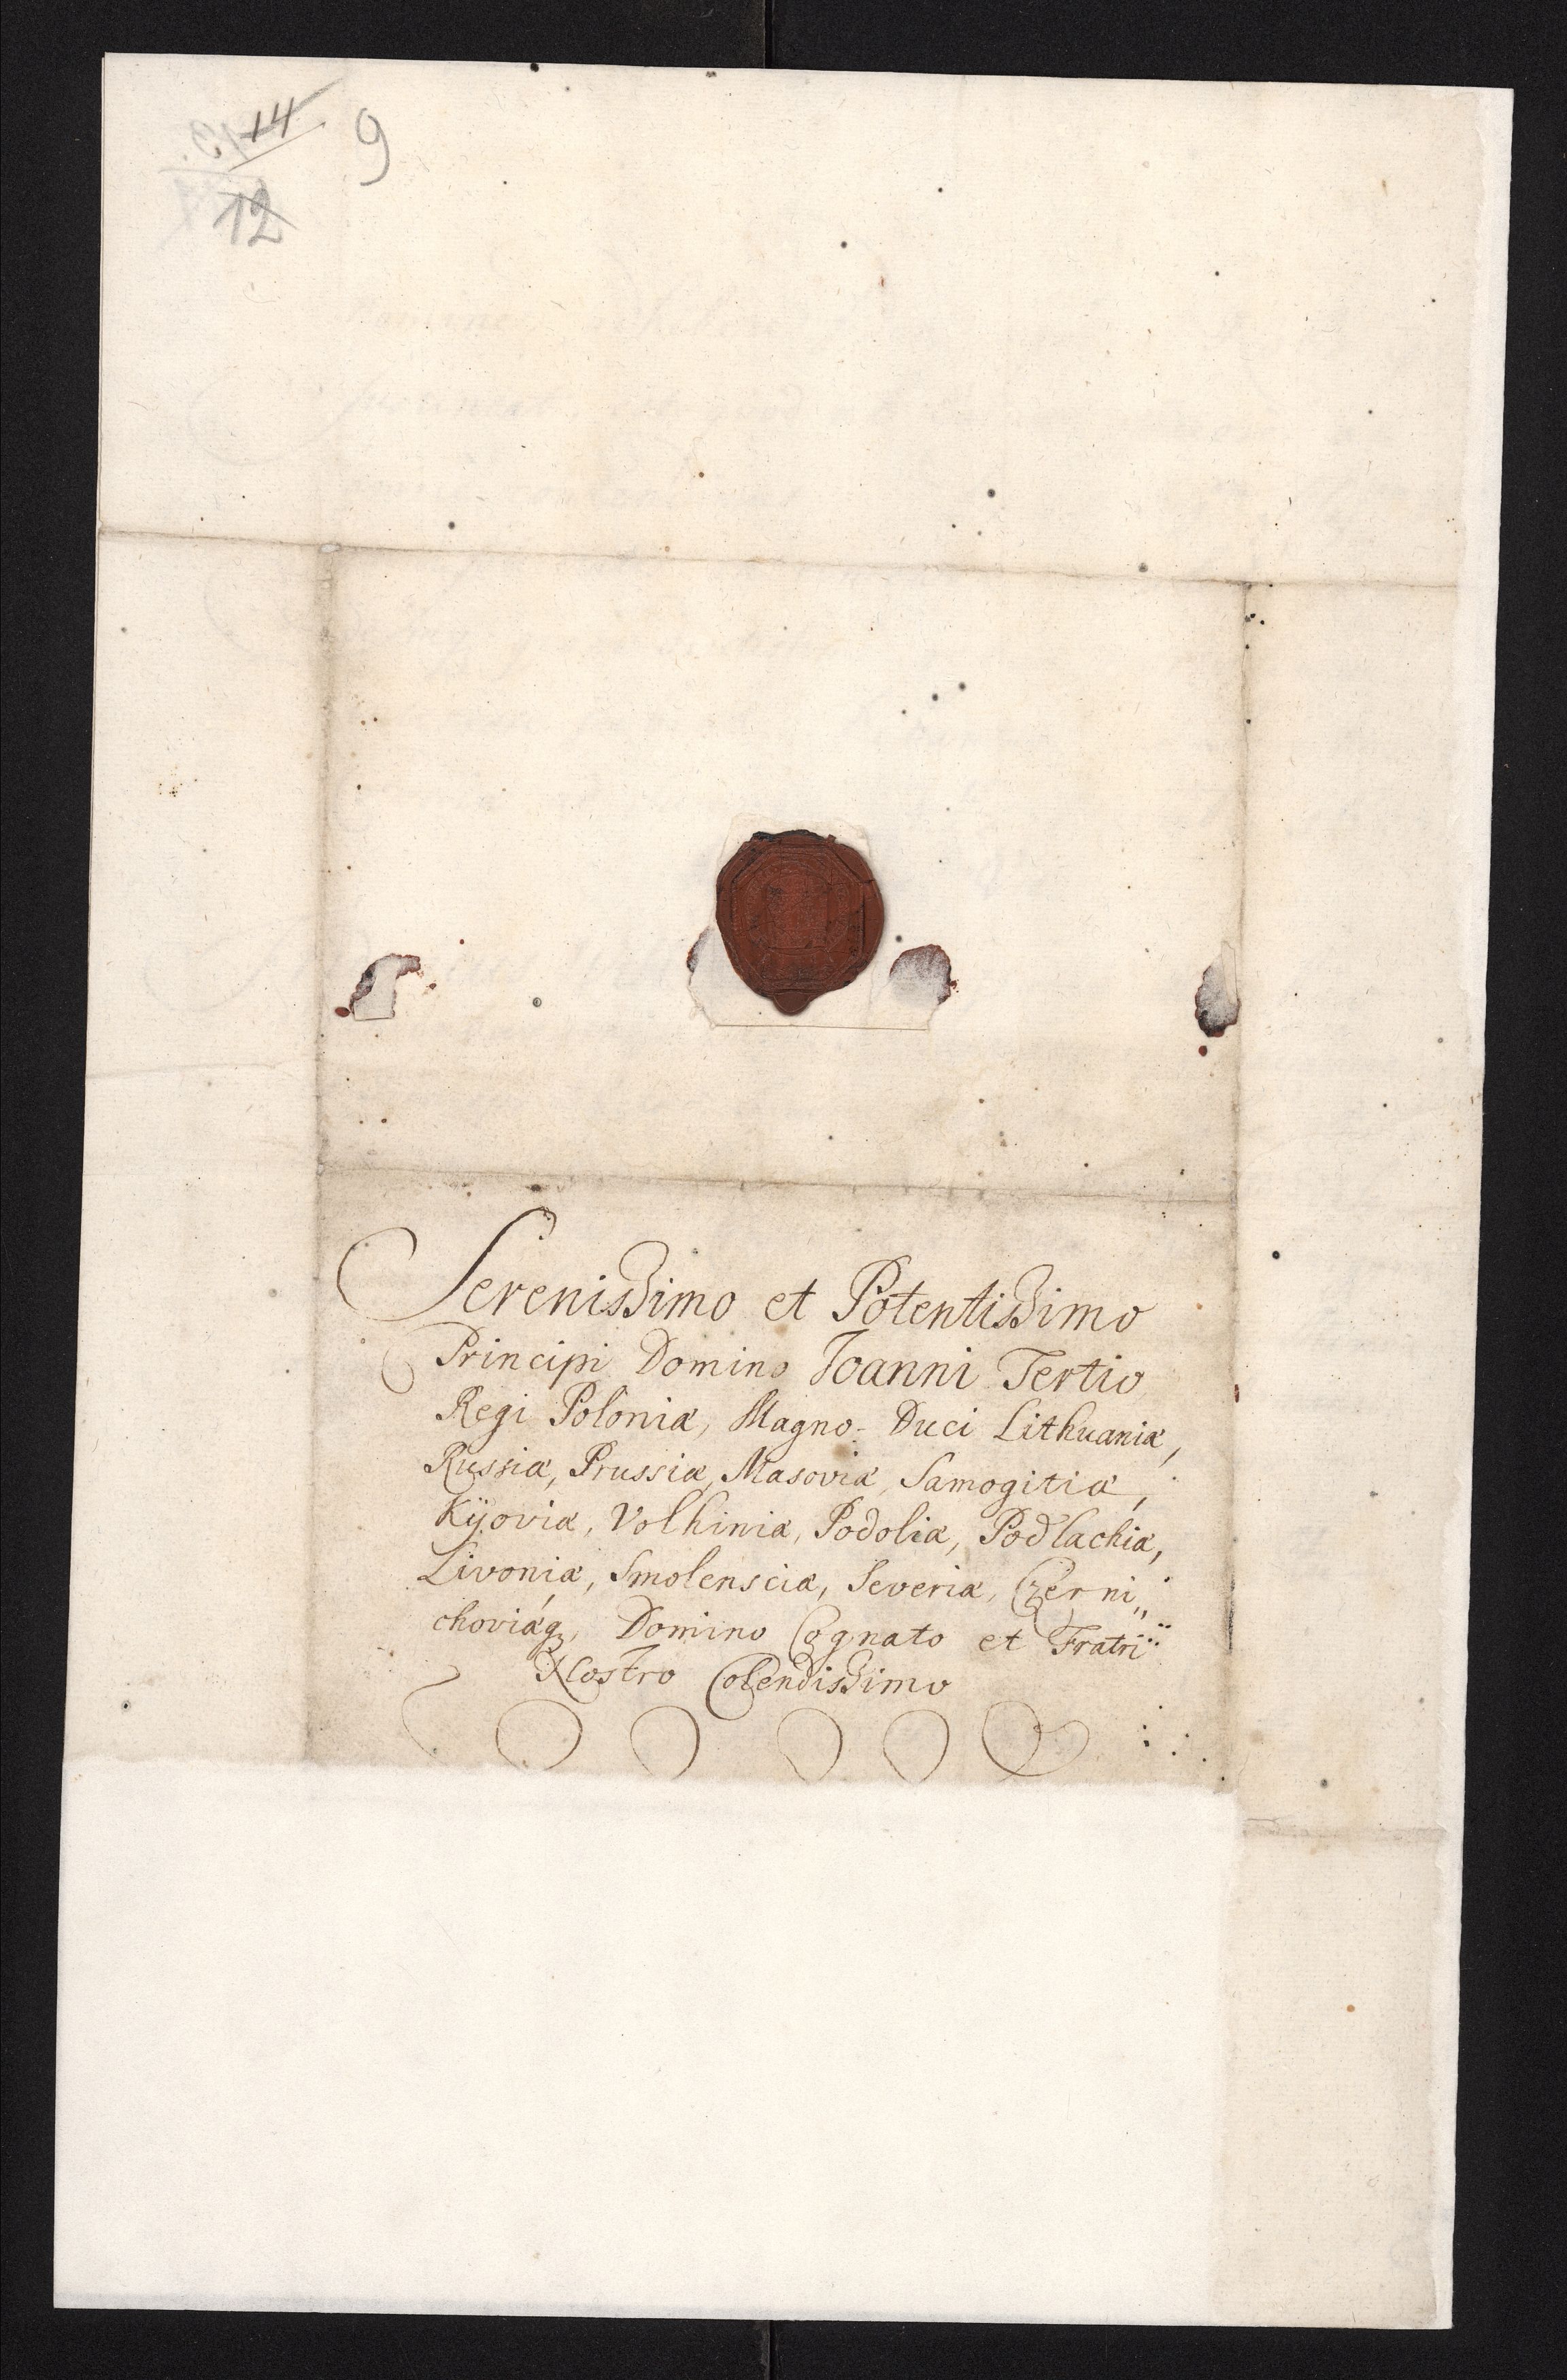 14
9
12
Serenissimo et Potentissimo
Principi Domino Joanni Tertio
Regi Poloniæ, Magno Duci Lithuaniæ,
Russiæ, Prussiæ, Masoviæ, Samogitiæ,
Kÿoviæ, Volhiniæ, Podoliæ, Podlachiæ,
Livoniæ, Smolensciæ, Severiæ, Czerni„
choviæq₃, Domino Cognato et Fratri
Nostro Colendissimo